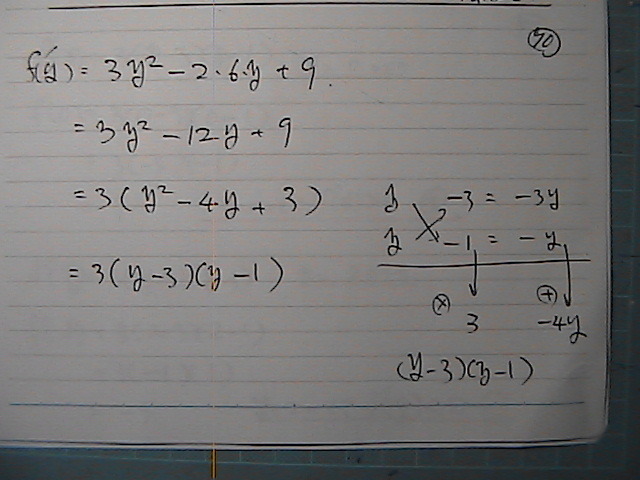 90
f(y) = 3y² - 2·6·y + 9.
= 3y² - 12y + 9
= 3(y² - 4y + 3)
= 3(y - 3)(y - 1)
y -3 = -3y
y -1 = -y
⊗ ⊕
3 -4y
(y - 3)(y - 1)